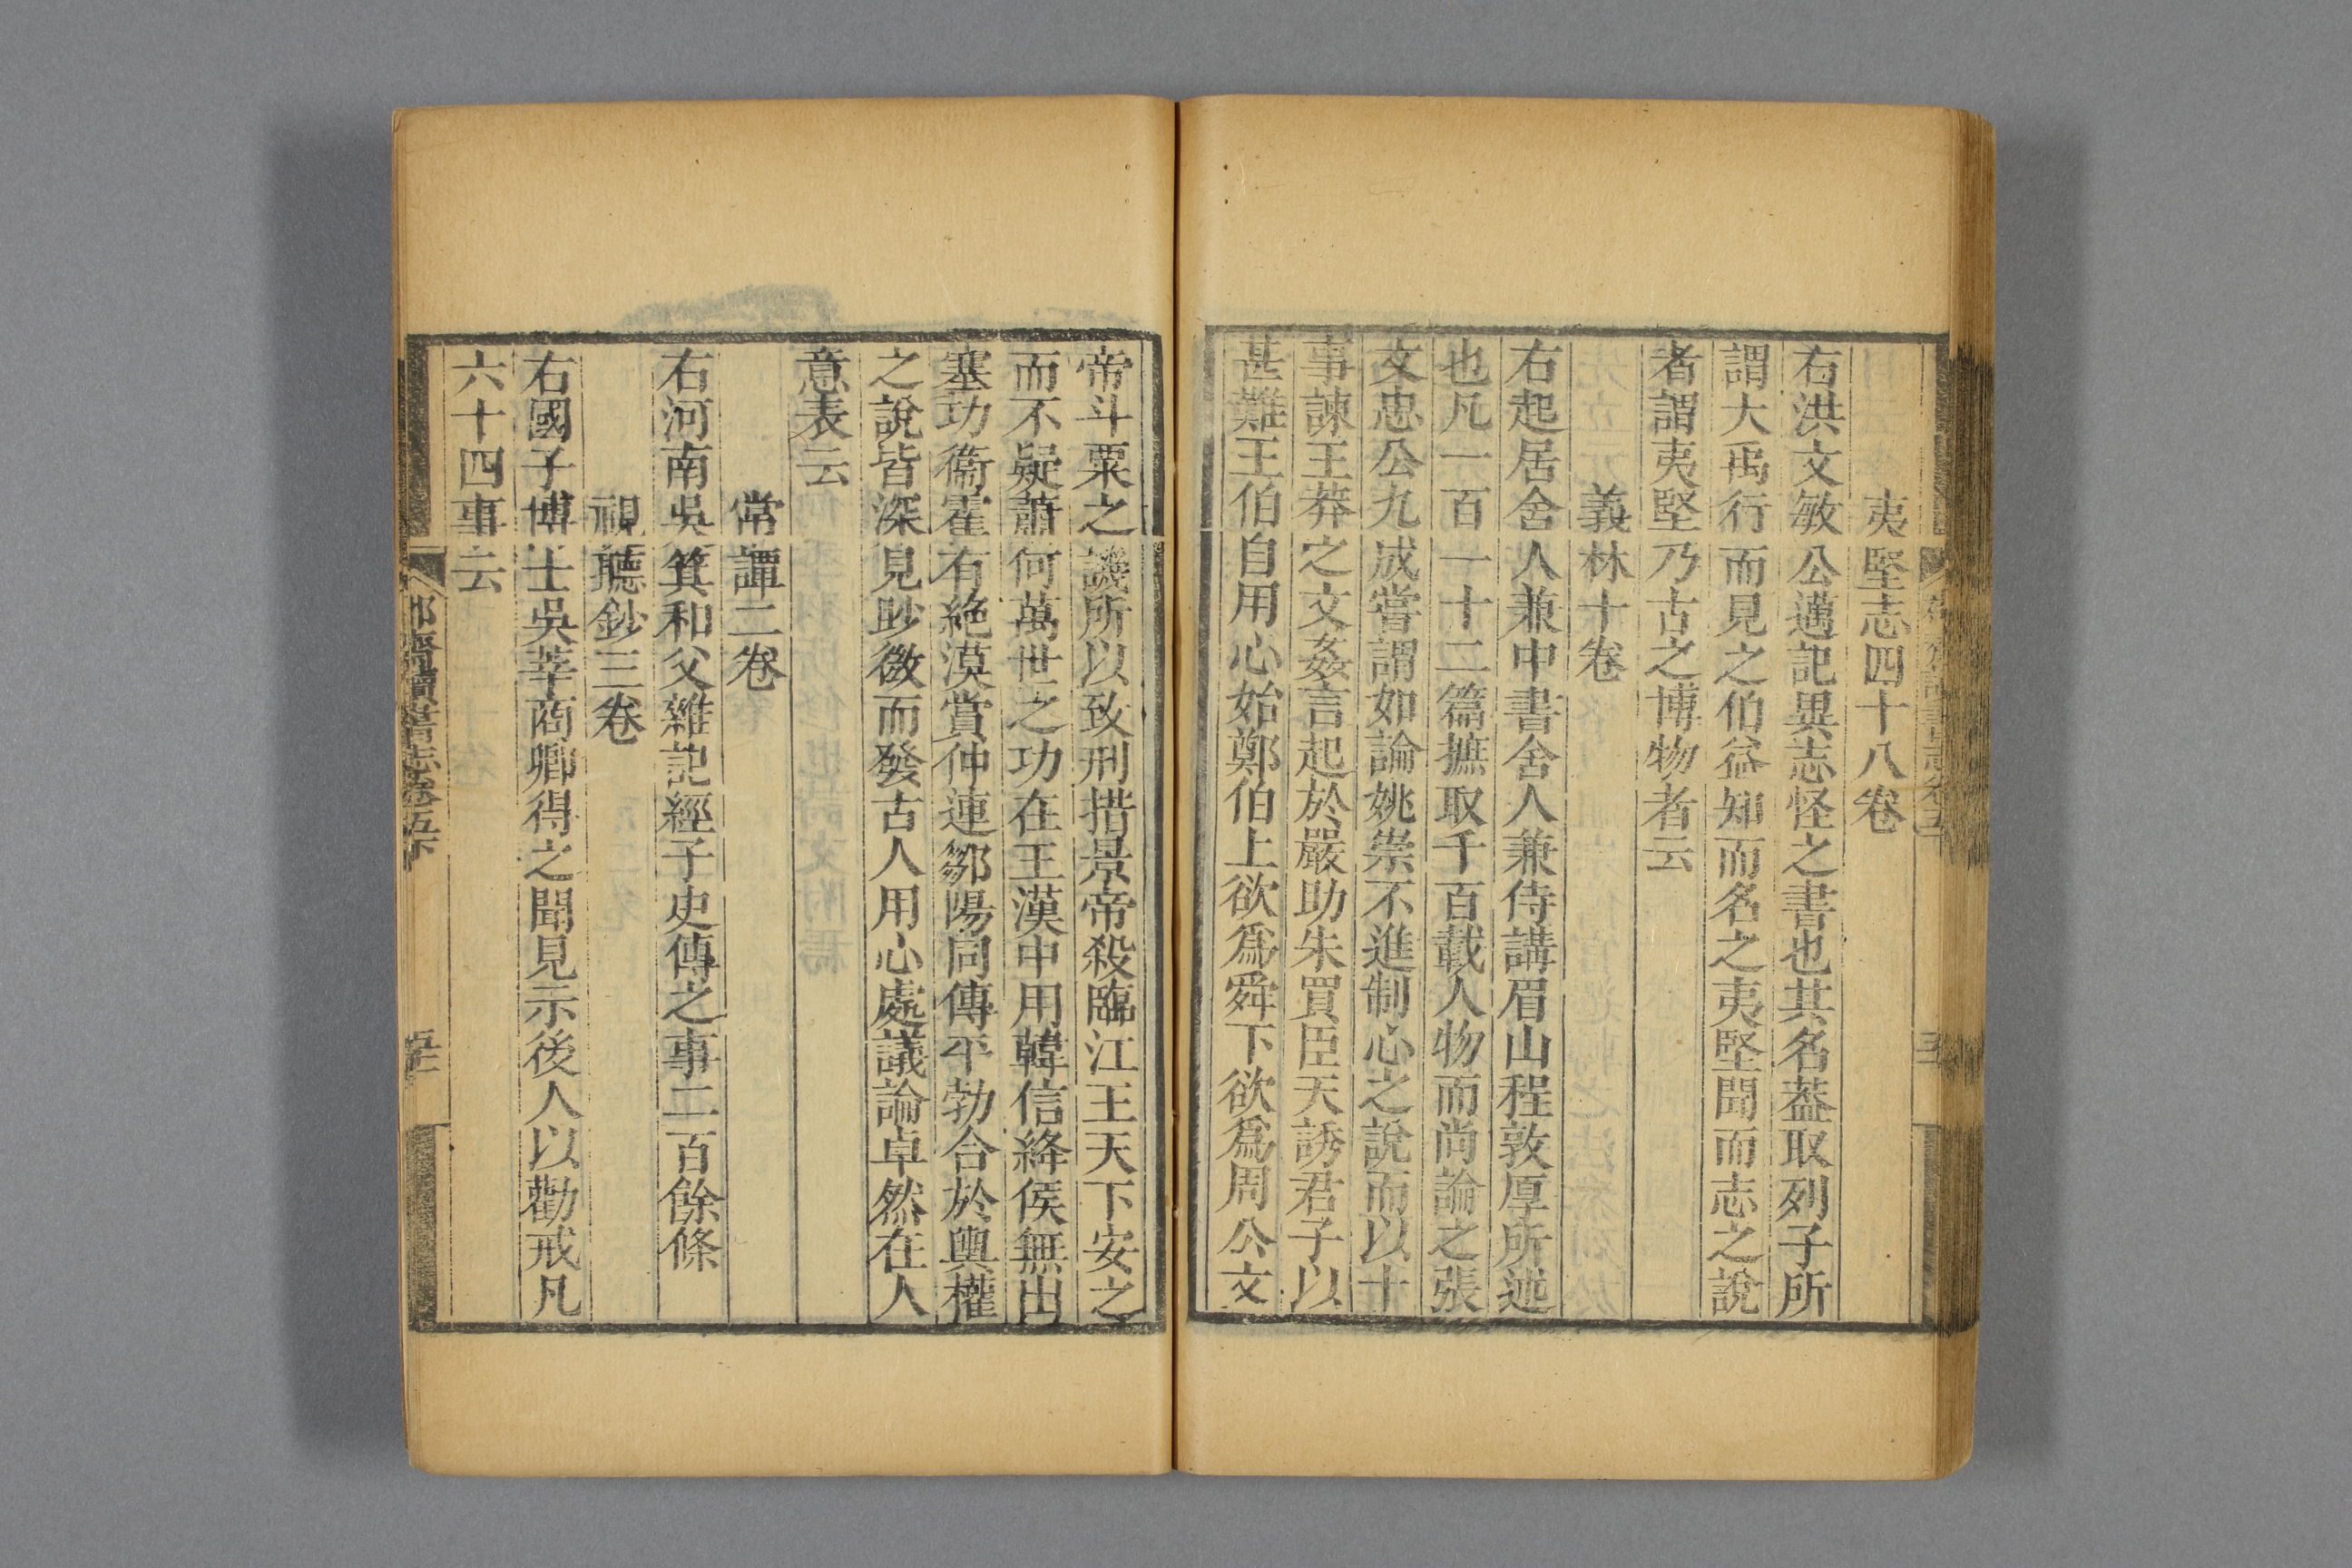 夷堅志四十八卷
右洪文敏公邁記異志怪之書也其名葢取列子所
謂大禹行而見之伯益知而名之夷堅聞而志之說
者謂夷堅乃古之博物者云
義林十卷
右起居舍人兼中書舍人兼侍講眉山程敦厚所述
也凡一百一十二篇摭取千百載人物而尚論之張
文忠公九成嘗謂如論姚崇不進制心之說而以十
事諫王莽之文姦言起於嚴助朱買臣天誘君子以
甚難王伯自用心始鄭伯上欲爲舜下欲爲周公文
帝斗粟之譏所以致刑措景帝殺臨江王天下安之
而不疑蕭何萬世之功在王漢中用韓信絳侯無出
塞功衞霍有絶漠賞仲連鄒陽同傳平勃合於輿權
之說皆深見眇微而發古人用心處議論卓然在人
意表云
常譚二卷
右河南吳箕和父雜記經子史傳之事二百餘條
視聽鈔三卷
右國子博士吳莘商卿得之聞見示後人以勸戒凡
六十四事云
郡齋讀書志卷五下